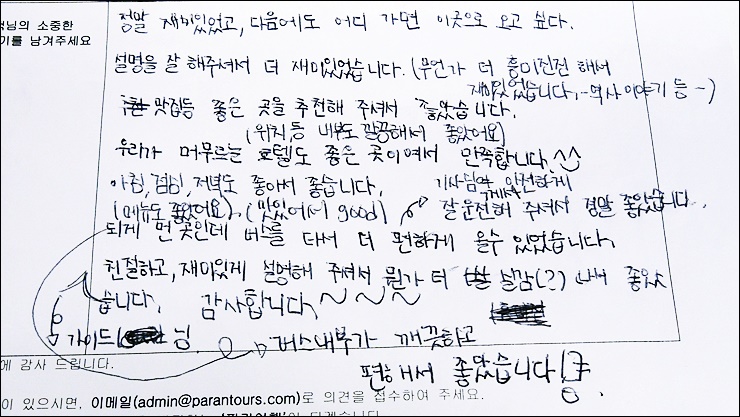 님의 소중한
기를 남겨주세요
정말 재미있었고, 다음에도 어디 가면 이곳으로 오고 싶다.
설명을 잘 해주셔서 더 재미있었습니다. (무언가 더 흥미진진 해서
재미있었습니다, -역사이야기 등 -)
맛집등 좋은 곳을 추천해 주셔서 좋았습니다.
(위치 등 내부도 깔끔해서 좋았어요)
우리가 머무르는 호텔도 좋은 곳이여서 만족합니다. ^^
아침, 점심, 저녁도 좋아서 좋습니다.
(메뉴도 좋았어요), (맛있어서 good)
기사님께서 안전하게
잘 운전해 주셔서 정말 좋았습니다.
되게 먼 곳인데 버스를 타서 더 편하게 올수 있었습니다.
친절하고, 재미있게 설명해 주셔서 뭔가 더 실감(?) 나서 좋았
습니다. 감사합니다, ~ ~ ~
가이드 님.
버스내부가 깨끗하고
편해서 좋았습니다!
에 감사 드립니다.
이 있으시면, 이메일(admin@parantours.com)로 의견을 접수하여 주세요.